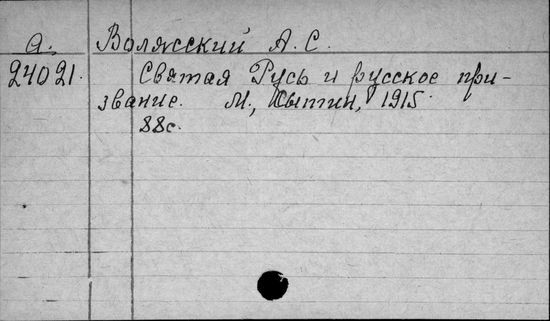 А. Волжский А. С.
24021. Святая Русь и русское при-
звание. М., Сытин, 1915.
88с.